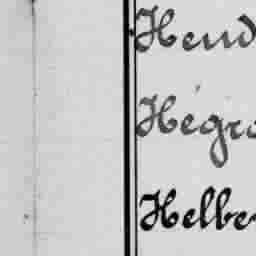 Hend
Hégro
Helber